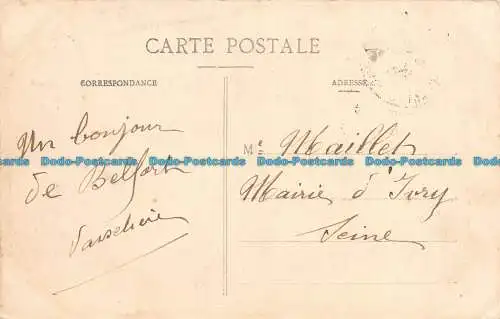 CARTE POSTALE
CORRESPONDANCE
ADRESSE
Un bonjour
de Belfort
Me Maillet
Mairie d'Ivry
Seine
Dodo-Postcards Dodo-Postcards Dodo-Postcards Dodo-Postcards Dodo-Postcards